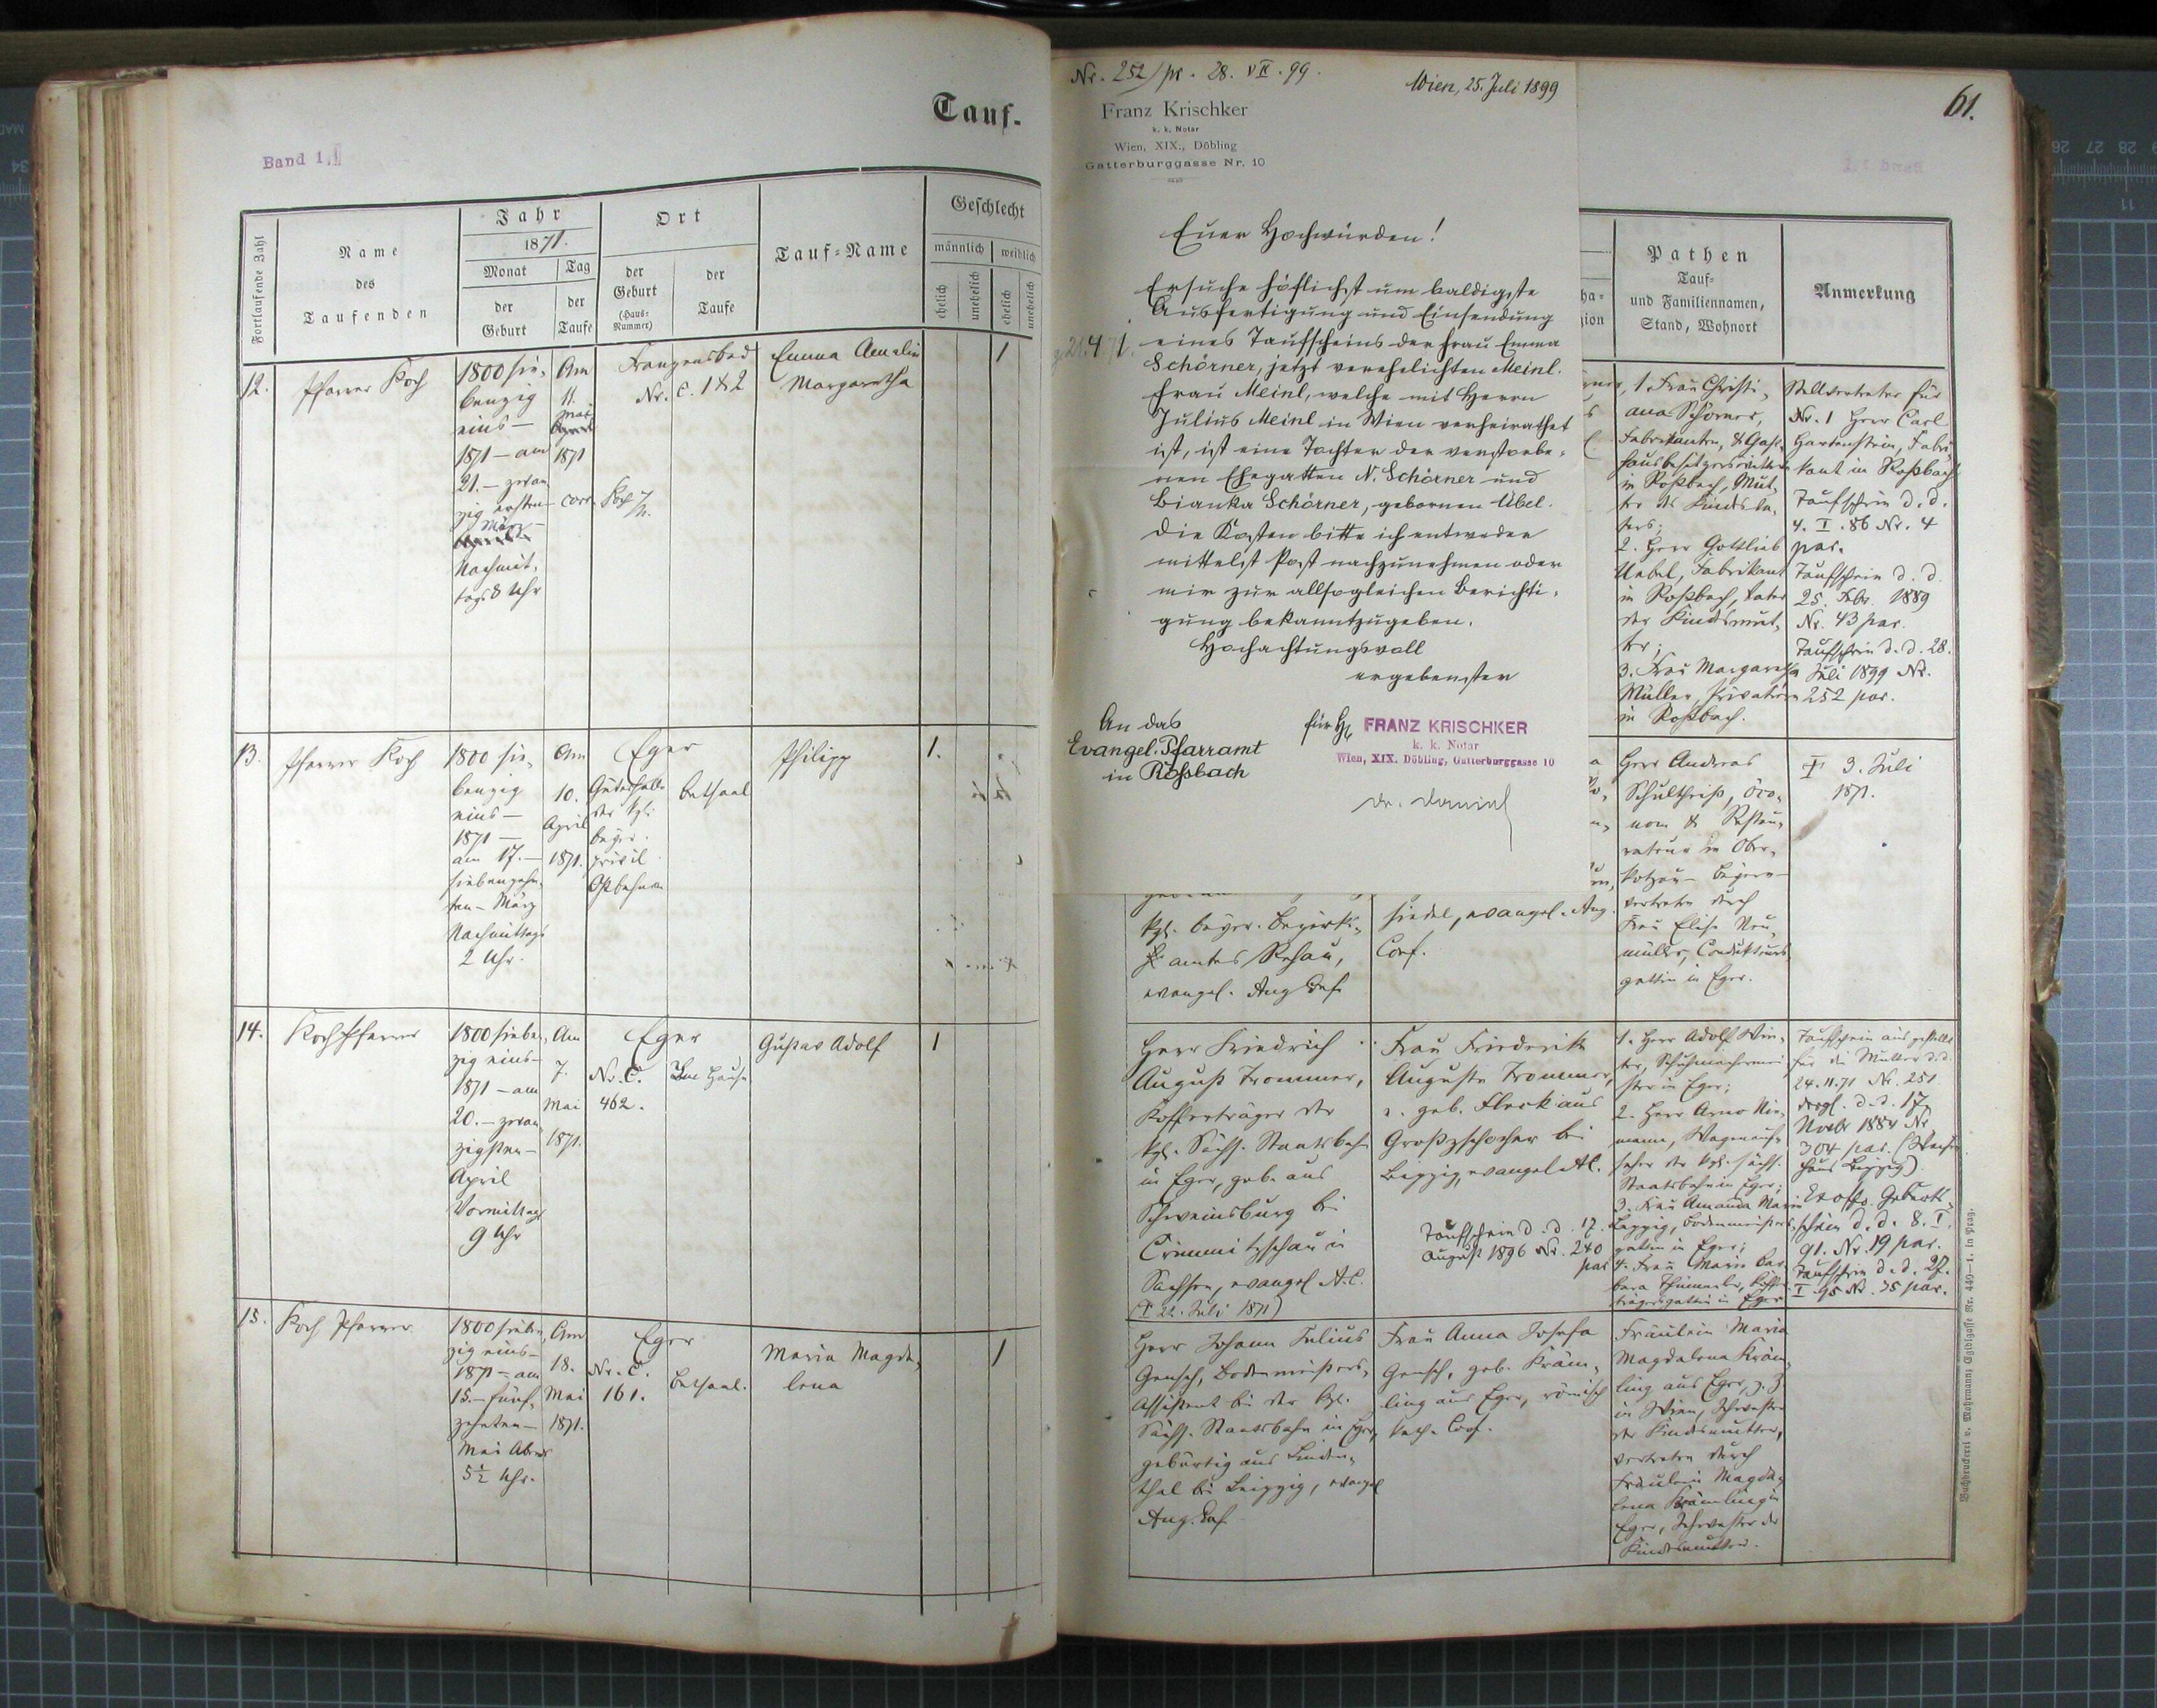 Tauf-
Band 1.
Fortlaufende Zahl
Name
des
Taufenden
Jahr
1871.
Monat
der
Geburt
Tag
der
Taufe
Ort
der
Geburt
(Haus-
Nummer)
der
Taufe
Tauf-Name
Geschlecht
männlich
weiblich
ehelich
unehelich
ehelich
unehelich
12.
Pfarrer Koch
1800 sie-
benzig
eins-
1871 - am
21. - zwan
zig ersten
März
Nachmit-
tags 8 Uhr
Am
11.
Mai
1871
corr. Koch
Franzensbad
Nr. C. 1 & 2
Emma Amalia
Margaretha
1
13.
Pfarrer Koch
1800 sie-
benzig
eins-
1871 -
am 17. -
siebenzehn-
ten - März
Nachmittags
2 Uhr.
Am
10.
April
1871.
Eger
Güterhalle
der kgl.
bayr.
privil.
Ostbahn
Betsaal
Philipp
1.
14.
Koch Pfarrer
1800 sieben
zig eins-
1871 - am
20. - zwan
zigsten -
April
Vormittags
9 Uhr
Am
7.
Mai
1871.
Eger
Nr. C.
462.
Im Hause
Gustav Adolf
1
15.
Koch Pfarrer
1800 sieben
zig eins-
1871 - am
15. - fünf-
zehnten -
Mai Abends
5½ Uhr.
Am
18.
Mai
1871.
Eger
Nr. C.
161.
Betsaal.
Maria Magda-
lena
1
Nr. 252/pr. 28. VII. 99.
Wien, 25. Juli 1899
Franz Krischker
k. k. Notar
Wien, XIX., Döbling
Gatterburggasse Nr. 10
Euer Hochwürden!
Ersuche höflichst um baldigste
Ausfertigung und Einsendung
eines Taufscheins der Frau Emma
Schörner, jetzt verehelichten Meinl.
Frau Meinl, welche mit Herrn
Julius Meinl in Wien verheirathet
ist, ist eine Tochter der verstorbe-
nen Ehegatten N. Schörner und
Bianka Schörner, gebornen Übel.
Die Kosten bitte ich entweder
mittelst Post nachzunehmen oder
mir zur allsogleichen Berichti-
gung bekanntzugeben.
Hochachtungsvoll
ergebenster
An das
Evangel. Pfarramt
in Roßbach
für H.
FRANZ KRISCHKER
k. k. Notar
Wien, XIX. Döbling, Gatterburggasse 10
Dr. Daniel
61.
Pathen
Tauf-
und Familiennamen,
Stand, Wohnort
Anmerkung
1. Frau Christi-
ana Schörner,
Fabrikanten, & Gast-
hausbesitzerswittwe
in Roßbach, Mut-
ter des Kindsva-
ters;
2. Herr Gottlieb
Uebel, Fabrikant
in Roßbach, Vater
der Kindsmut-
ter;
3. Frau Margaretha
Müller, Privatière
in Roßbach.
Stellvertreter für
Nr. 1 Herr Carl
Hartenstein, Fabri-
kant in Roßbach
Taufschein d. d.
4. I. 86 Nr. 4
par.
Taufschein d. d.
25. Febr. 1889
Nr. 43 par.
Taufschein d. d. 28.
Juli 1899 Nr.
252 par.
kgl. bayer. Bezirks-
amtes Rehau,
evangel. Aug. Conf.
siedel, evangel. Aug.
Conf.
Herr Andreas
Schultheiß, Öco-
nom & Restau-
rateur in Ober-
kotzau - Bayern -
vertreten durch
Frau Elise Neu-
müller, Condukteurs-
gattin in Eger.
† 3. Juli
1871.
Herr Friedrich
August Trommer,
Kofferträger der
kgl. Sächs. Staatsbahn
in Eger, geb. aus
Schweinsburg bei
Crimmitzschau in
Sachsen, evangel. A. C.
(† 22. Juli 1871)
Frau Friederike
Auguste Trommer,
geb. Fleck aus
Großzschocher bei
Leipzig, evangel. A. C.
Taufschein d. d. 17.
August 1896 Nr. 240
par
1. Herr Adolf Win-
ter, Schuhmachermei
ster in Eger;
2. Herr Arno Nie-
mann, Wagenauf-
seher der kgl. sächs.
Staatsbahn in Eger;
3. Frau Amanda Marie
Leppzig, Bodenmeisters-
gattin in Eger;
4. Frau Marie Bar-
bara Thümmler, Koffer-
trägersgattin in Eger
Taufschein ausgestellt
für die Mutter d. d.
24. 11. 71 Nr. 251
dergl. d. d. 17.
Novbr 1884 Nr
304 par. (Waisen
haus Leipzig).
Ex offo. Geburts-
schein d. d. 8. I.
91. Nr. 19 par.
Taufschein d. d. 27.
I 95 Nr. 35 par.
Herr Johann Julius
Gensch, Bodenmeisters-
Assistent bei der kgl.
Sächs. Staatsbahn in Eger,
gebürtig aus Linden-
thal bei Leipzig, evangel
Aug. Conf.
Frau Anna Josefa
Gensch, geb. Kräm-
ling aus Eger, römisch
kath. Conf.
Fräulein Maria
Magdalena Kräm-
ling aus Eger, z. Z.
in Wien, Schwester
der Kindsmutter,
vertreten durch
Fräulein Magda-
lena Krämling in
Eger, Schwester der
Kindsmutter.
Buchdruckerei v. Mohrmann; Egidigasse Nr. 449—1. in Prag.